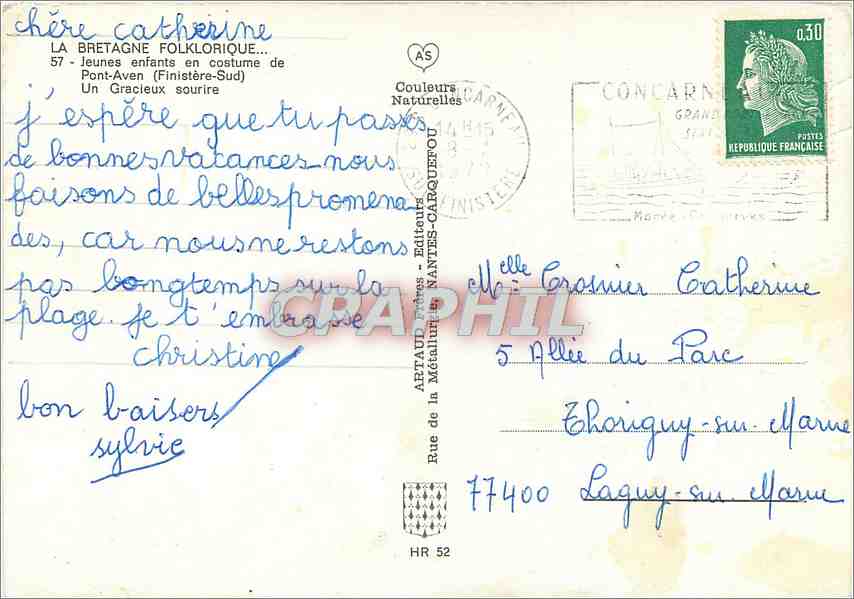 chère catherine
LA BRETAGNE FOLKLORIQUE...
57 - Jeunes enfants en costume de
Pont-Aven (Finistère-Sud)
Un Gracieux sourire
j'espère que tu passes
de bonnes vacances nous
faisons de belles promena
des, car nous ne restons
pas longtemps sur la
plage. je t'embrasse
christine
bon baisers
sylvie
AS
Couleurs
Naturelles
ARTAUD Frères - Editeurs
Rue de la Métallurgie, NANTES-CARQUEFOU
HR 52
CONCARNEAU
14H15
FINISTERE
CONCARN
0,30
POSTES
REPUBLIQUE FRANÇAISE
Melle Crosnier Catherine
5 Allée du Parc
Thorigny-sur-Marne
77400 Lagny-sur-Marne
CRAPHIL